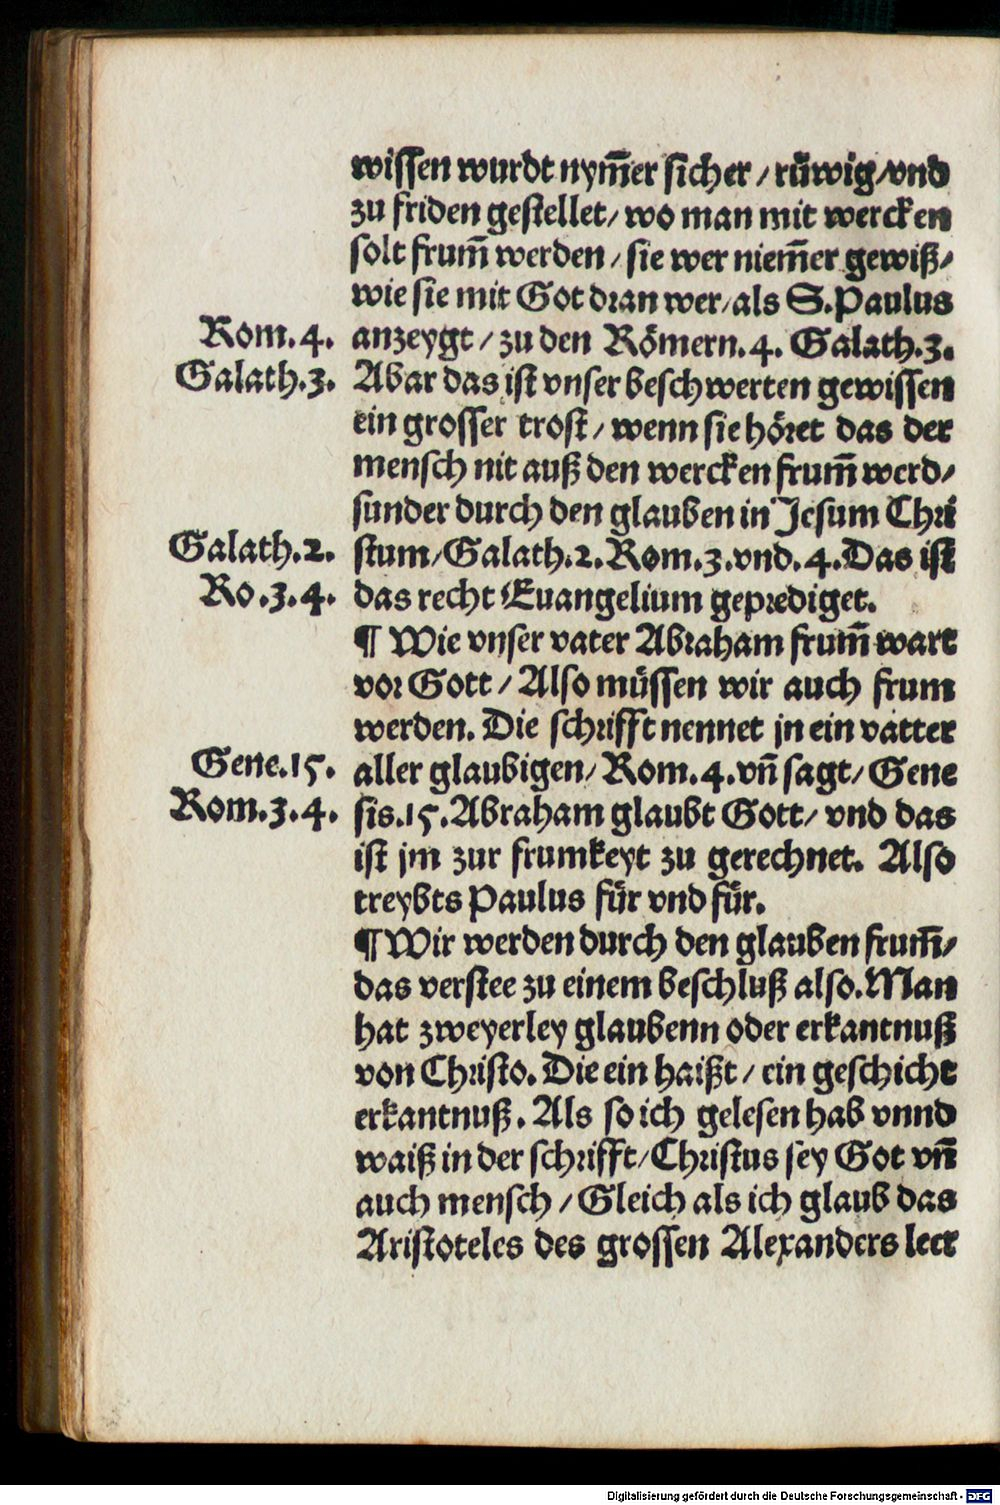 wissen wurdt nym̃er sicher / rüwig/vnd
zu friden gestellet/ wo man mit wercken
solt frum̃ werden / sie wer niem̃er gewiß/
wie sie mit Got dran wer/als S.Paulus
Rom.4. anzeygt / zu den Römern.4. Galath.3.
Galath.3. Abar das ist vnser beschwerten gewissen
ein grosser trost / wenn sie höret das der
mensch nit auß den wercken frum̃ werd/
sunder durch den glauben in Jesum Chri
Galath.2. stum/Galath.2.Rom.3.vnd.4.Das ist
Ro.3.4. das recht Euangelium geprediget.
¶ Wie vnser vater Abraham frum̃ wart
vor Gott / Also müssen wir auch frum
werden. Die schrifft nennet jn ein vatter
Gene.15. aller glaubigen/ Rom.4.vn̄ sagt/ Gene
Rom.3.4. sis.15.Abraham glaubt Gott/ vnd das
ist jm zur frumkeyt zu gerechnet. Also
treybts Paulus für vnd für.
¶ Wir werden durch den glauben frum̃/
das verstee zu einem beschluß also.Man
hat zweyerley glaubenn oder erkantnuß
von Christo.Die ein haißt / ein geschicht
erkantnuß. Als so ich gelesen hab vnnd
waiß in der schrifft/Christus sey Got vn̄
auch mensch / Gleich als ich glaub das
Aristoteles des grossen Alexanders leer
Digitalisierung gefördert durch die Deutsche Forschungsgemeinschaft - DFG